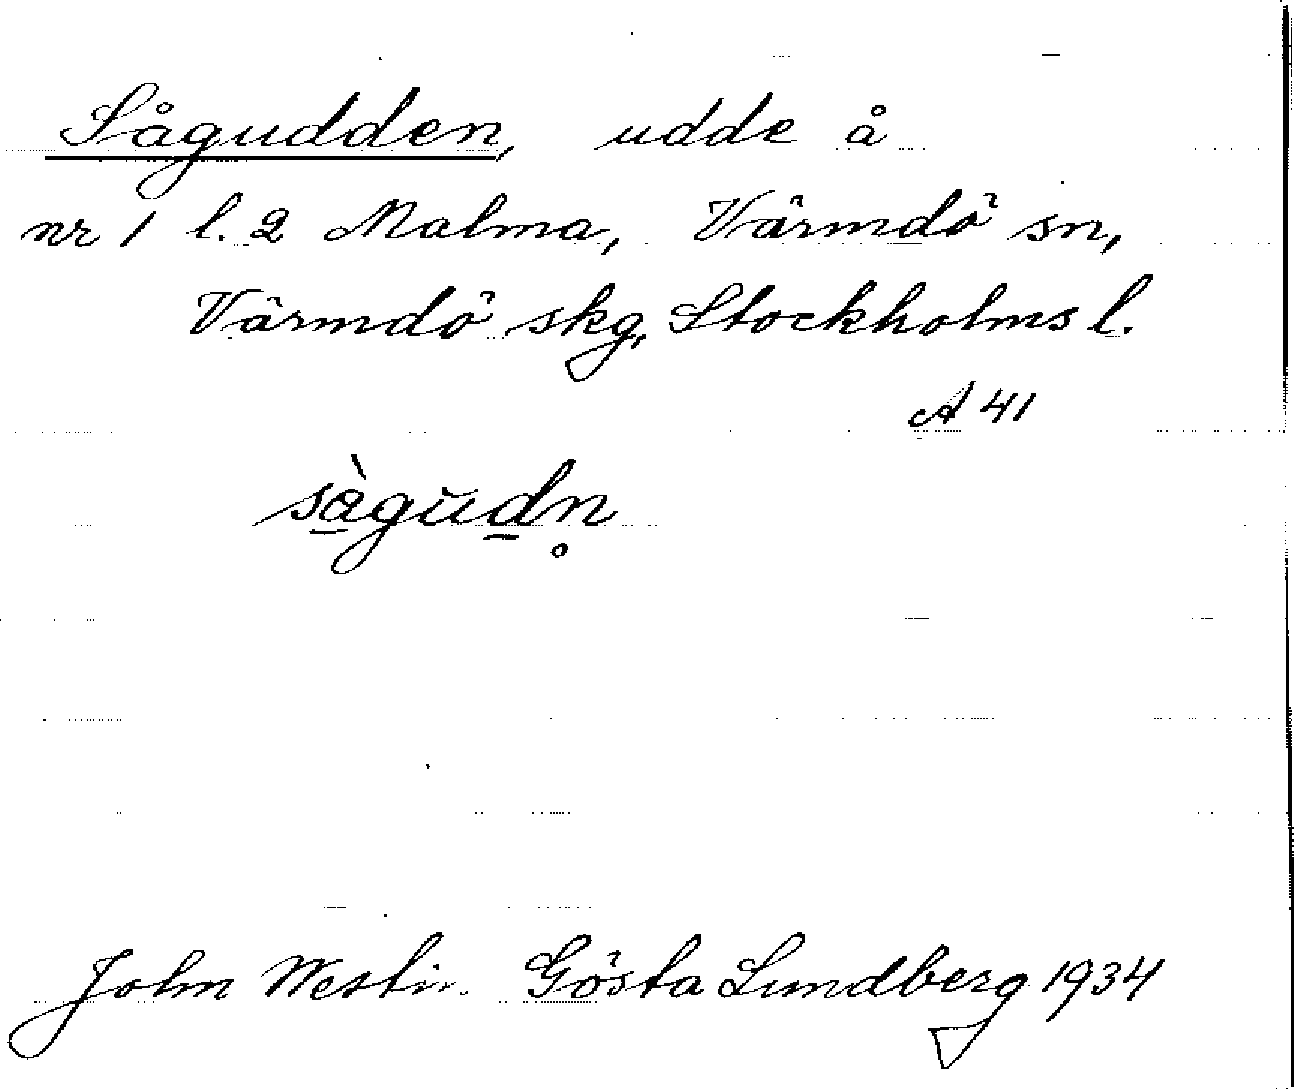 Sågudden, udde å
nr 1 l. 2 Malma, Värmdö sn,
Värmdö skg, Stockholms l.
A 41
sàgŭdn̥
John Westin. Gösta Lundberg 1934